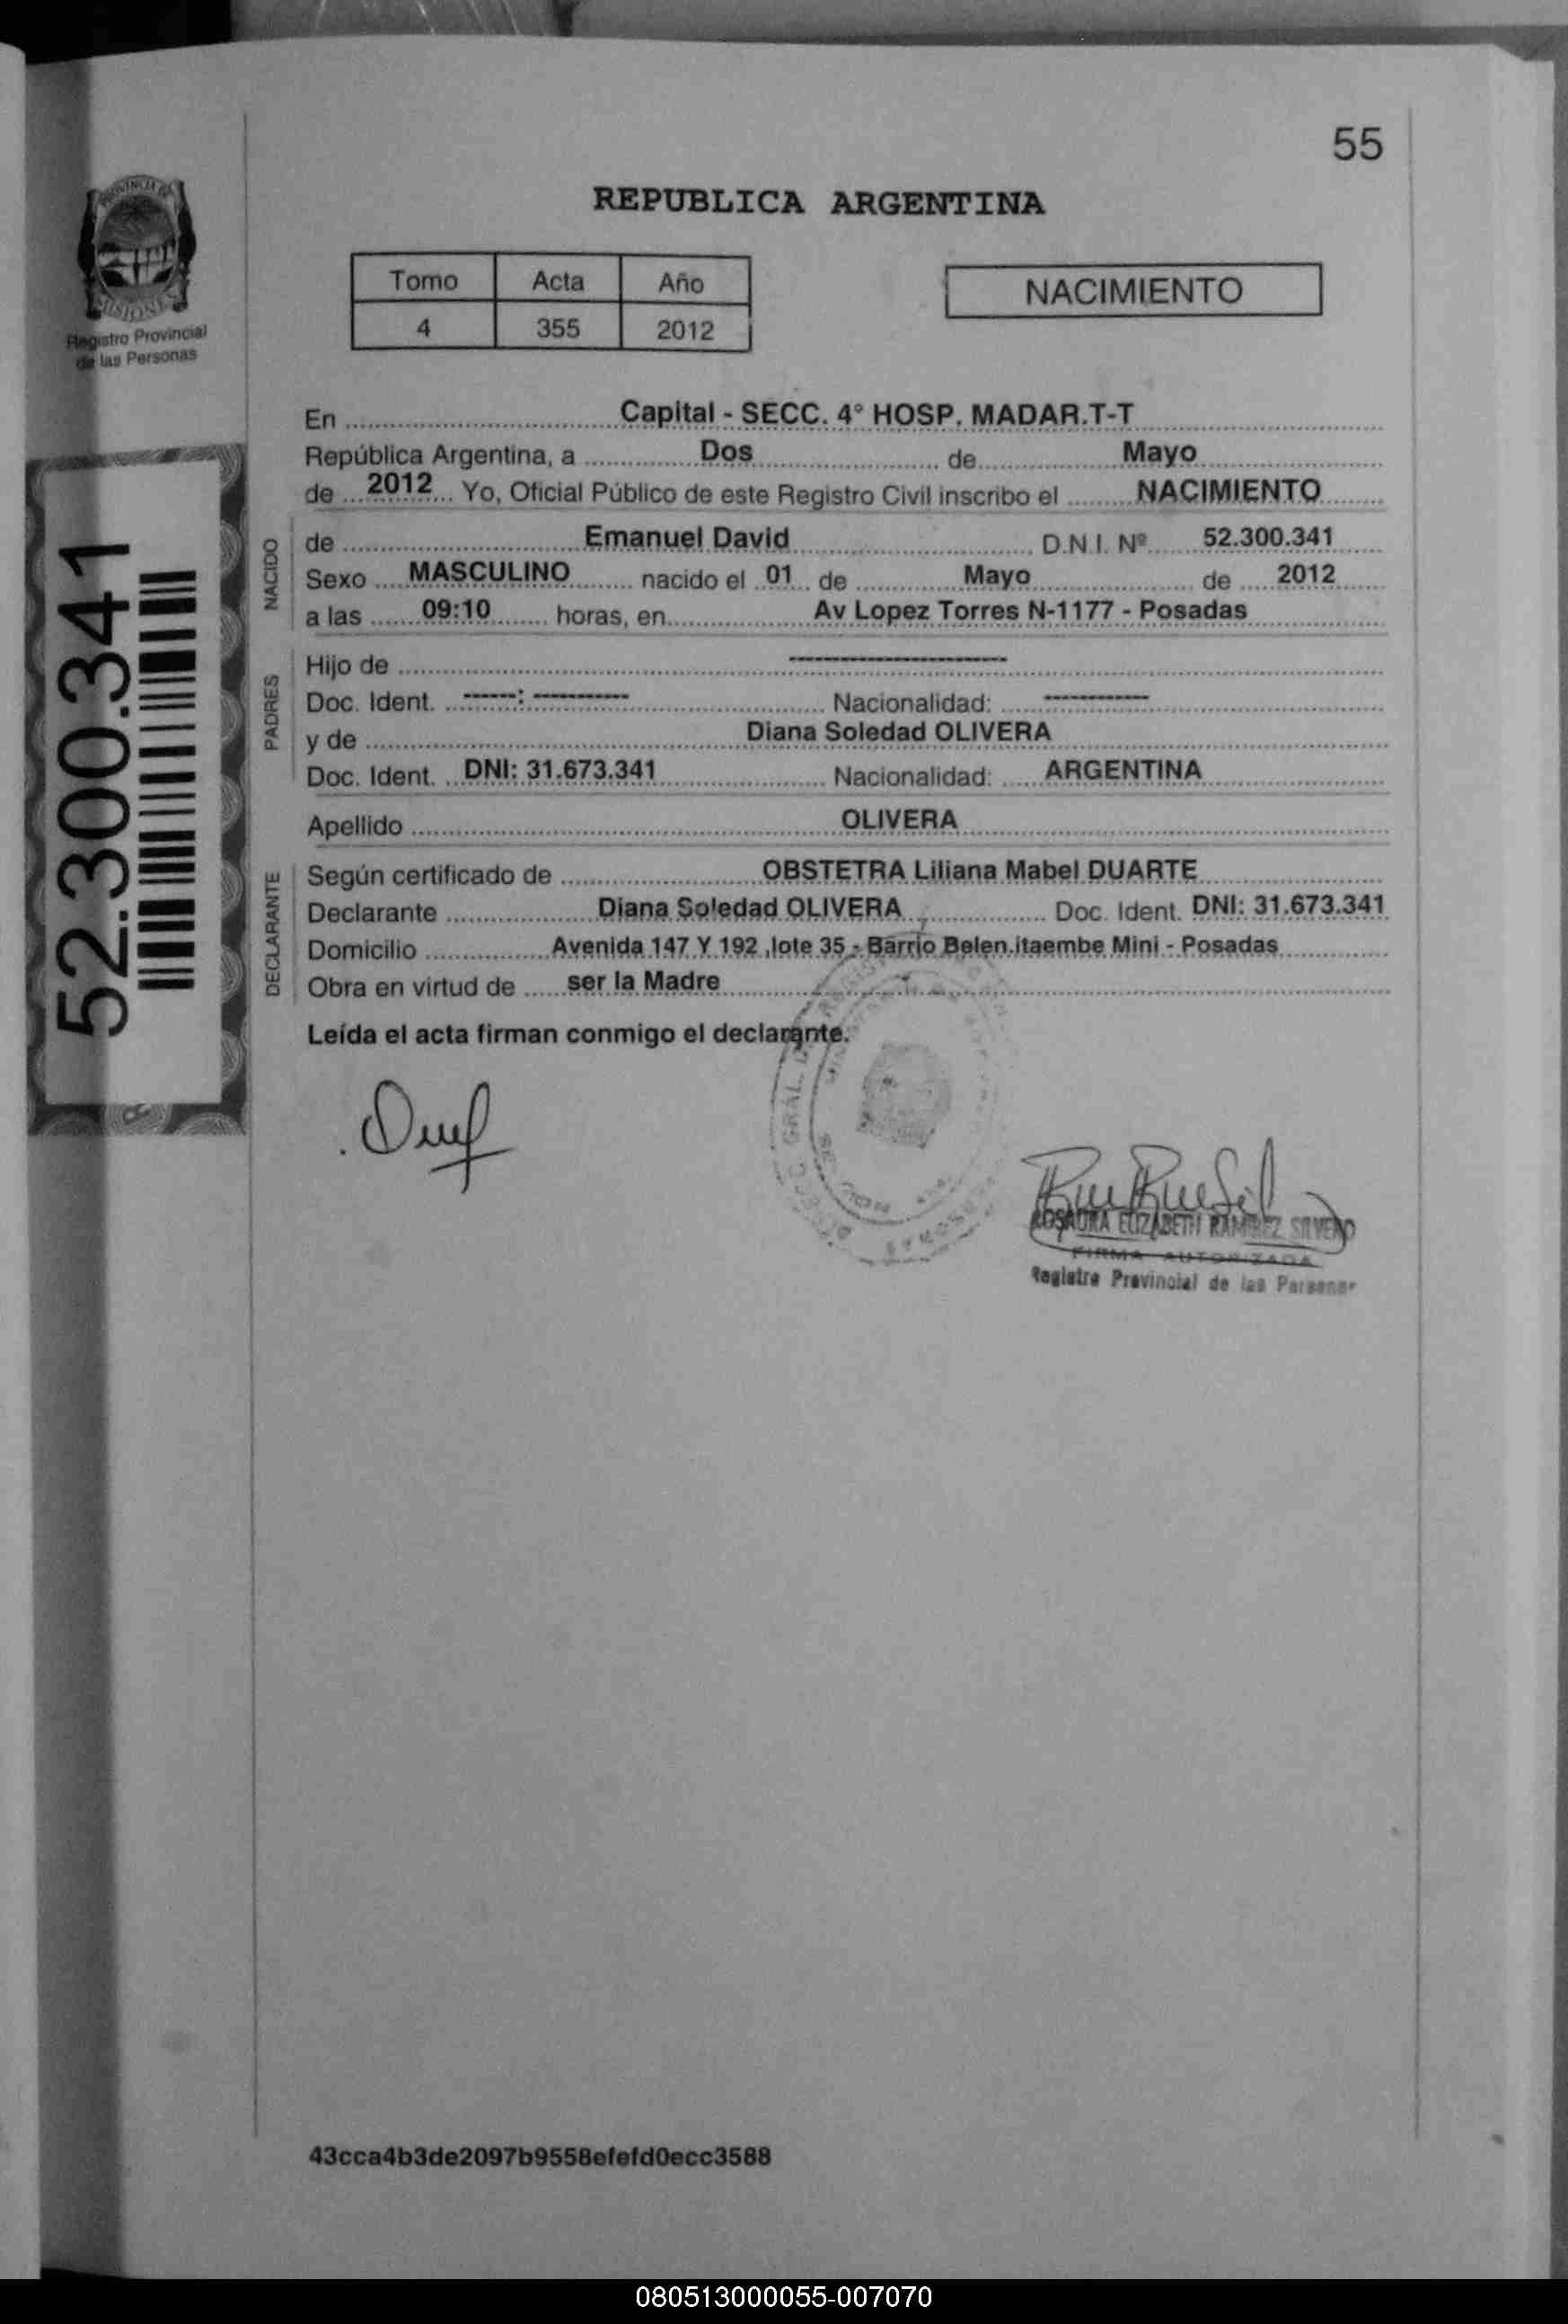 55
REPUBLICA ARGENTINA
PROVINCIA DE
MISIONES
Registro Provincial
de las Personas
Tomo Acta Año
4 355 2012
NACIMIENTO
En Capital - SECC. 4° HOSP. MADAR.T-T
República Argentina, a Dos de Mayo
de 2012 Yo, Oficial Público de este Registro Civil inscribo el NACIMIENTO
NACIDO
de Emanuel David D.N.I. Nº 52.300.341
Sexo MASCULINO nacido el 01 de Mayo de 2012
a las 09:10 horas, en Av Lopez Torres N-1177 - Posadas
PADRES
Hijo de --------------------
Doc. Ident. ------: ----------- Nacionalidad: ------------
y de Diana Soledad OLIVERA
Doc. Ident. DNI: 31.673.341 Nacionalidad: ARGENTINA
Apellido OLIVERA
DECLARANTE
Según certificado de OBSTETRA Liliana Mabel DUARTE
Declarante Diana Soledad OLIVERA Doc. Ident. DNI: 31.673.341
Domicilio Avenida 147 Y 192 ,lote 35 - Barrio Belen.itaembe Mini - Posadas
Obra en virtud de ser la Madre
Leída el acta firman conmigo el declarante.
52.300.341
GRAL.
ROSAURA ELIZABETH RAMIREZ SILVERO
FIRMA AUTORIZADA
Registro Provincial de las Personas
43cca4b3de2097b9558efefd0ecc3588
080513000055-007070